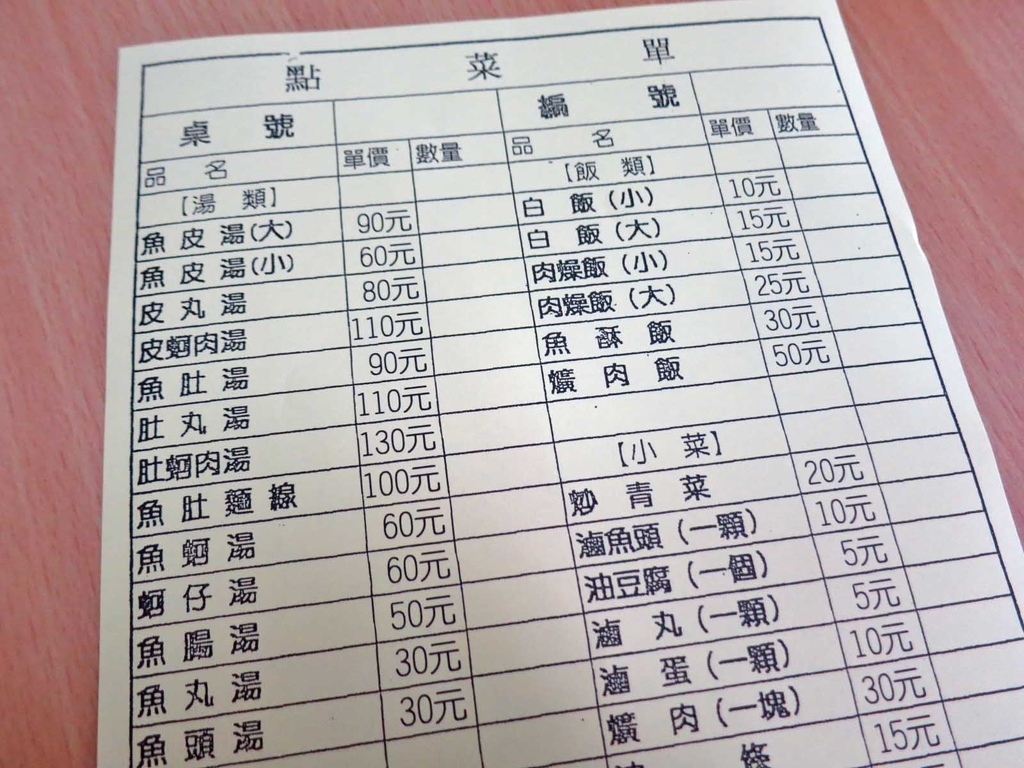 點 菜 單
桌 號
品 名 單價 數量
【湯 類】
魚 皮 湯(大) 90元
魚 皮 湯(小) 60元
皮 丸 湯 80元
皮蚵肉湯 110元
魚 肚 湯 90元
肚 丸 湯 110元
肚蚵肉湯 130元
魚 肚 麵 線 100元
魚 蚵 湯 60元
蚵 仔 湯 60元
魚 腸 湯 50元
魚 丸 湯 30元
魚 頭 湯 30元
編 號
品 名 單價 數量
【飯 類】
白 飯(小) 10元
白 飯(大) 15元
肉燥飯(小) 15元
肉燥飯(大) 25元
魚 酥 飯 30元
爌 肉 飯 50元
【小 菜】
炒 青 菜 20元
滷魚頭(一顆) 10元
油豆腐(一個) 5元
滷 丸(一顆) 5元
滷 蛋(一顆) 10元
爌 肉(一塊) 30元
15元